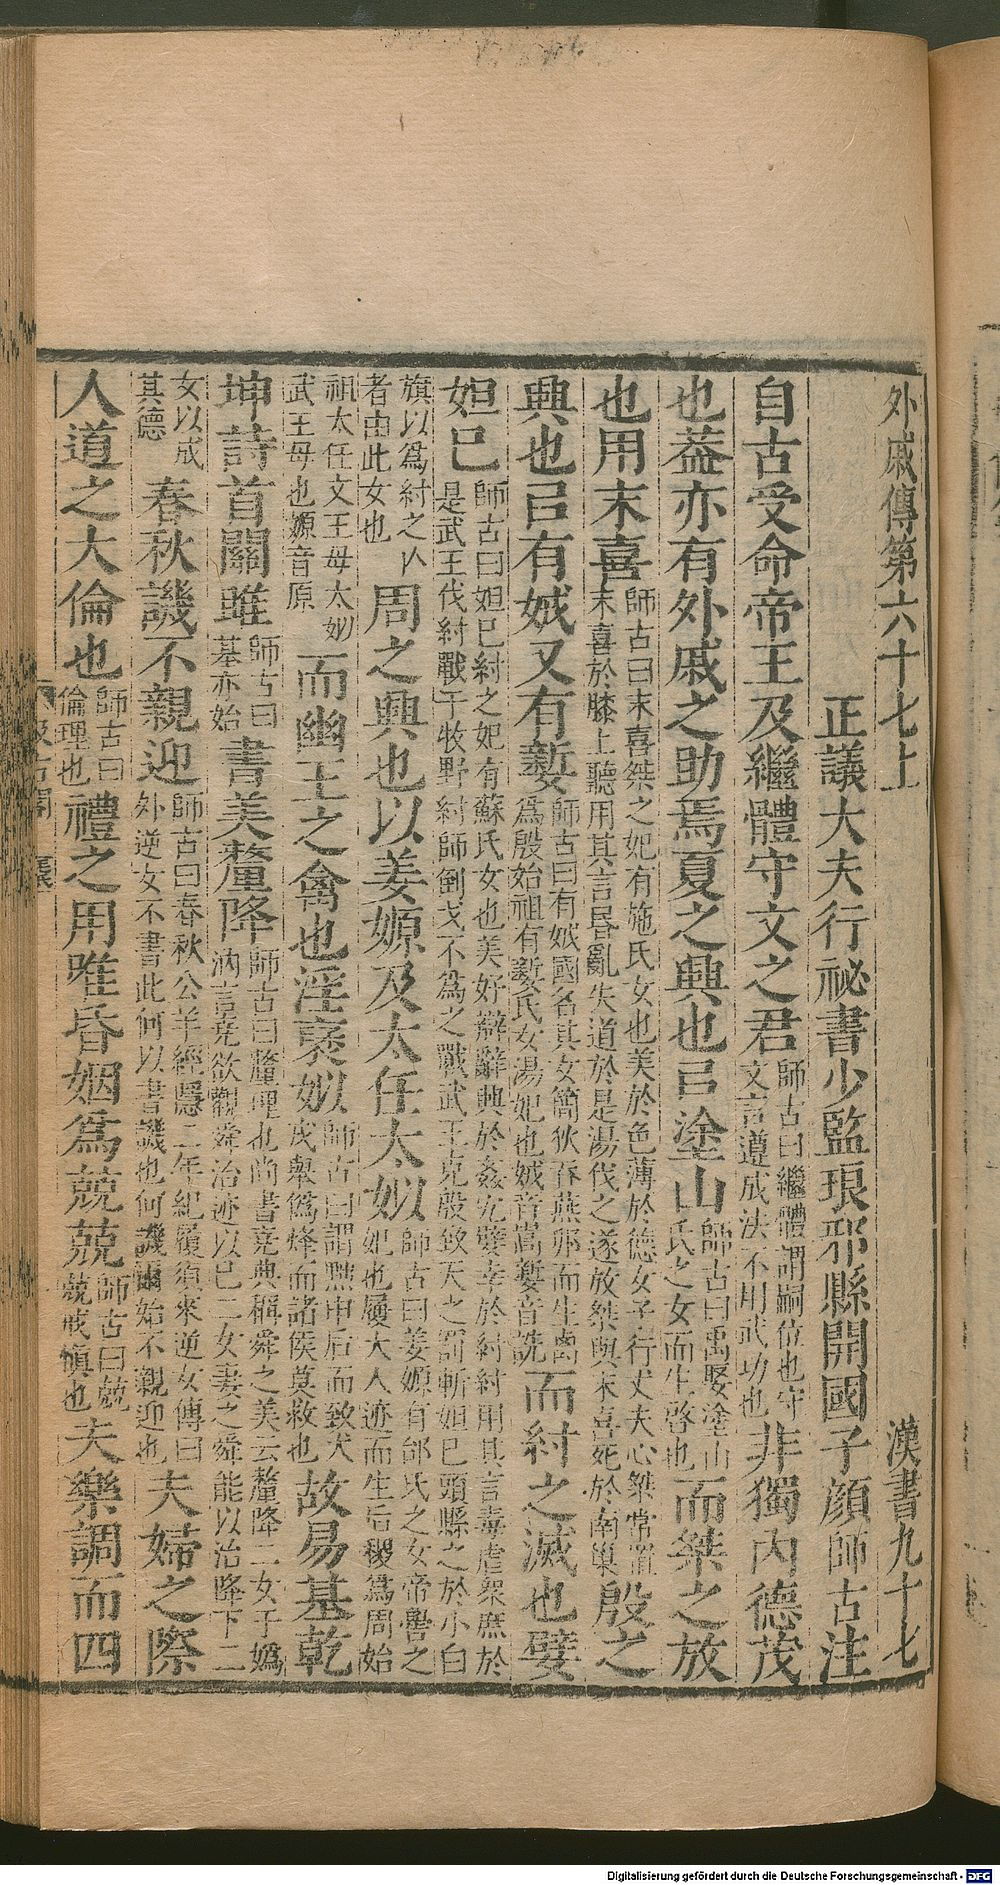 外戚傳第六十七上　漢書九十七
正議大夫行祕書少監琅邪縣開國子顏師古注
自古受命帝王及繼體守文之君師古曰繼體謂嗣位也守文言遵成法不用武功也非獨內德茂
也葢亦有外戚之助焉夏之興也㠯塗山師古曰禹娶塗山氏之女而生啓也而桀之放
也用末喜師古曰末喜桀之妃有施氏女也美於色薄於德女子行丈夫心桀常置末喜於膝上聽用其言昏亂失道於是湯伐之遂放桀與末喜死於南巢殷之
興也㠯有娀又有㜪師古曰有娀國名其女簡狄吞燕卵而生禼爲殷始祖有㜪氏女湯妃也娀音嵩㜪音詵而紂之滅也嬖
妲己師古曰妲己紂之妃有蘇氏女也美好辯辭興於姦宄嬖幸於紂紂用其言毒虐衆庶於是武王伐紂戰于牧野紂師倒戈不爲之戰武王克殷致天之罰斬妲己頭縣之於小白
旗以爲紂之亡者由此女也周之興也以姜嫄及太任太姒師古曰姜嫄有邰氏之女帝嚳之妃也履大人迹而生后稷爲周始
祖太任文王母太姒武王母也嫄音原而幽王之禽也淫襃姒師古曰謂黜申后而致犬戎舉僞烽而諸侯莫救也故易基乾
坤詩首關雎師古曰基亦始書美釐降師古曰釐理也尚書堯典稱舜之美云釐降二女于嬀汭言堯欲觀舜治迹以己二女妻之舜能以治降下二
女以成其德春秋譏不親迎師古曰春秋公羊經隱二年紀履須來逆女傳曰外逆女不書此何以書譏也何譏爾始不親迎也夫婦之際
人道之大倫也師古曰倫理也禮之用唯昏姻爲兢兢師古曰兢兢戒愼也夫樂調而四
汲古閣
Digitalisierung gefördert durch die Deutsche Forschungsgemeinschaft - DFG